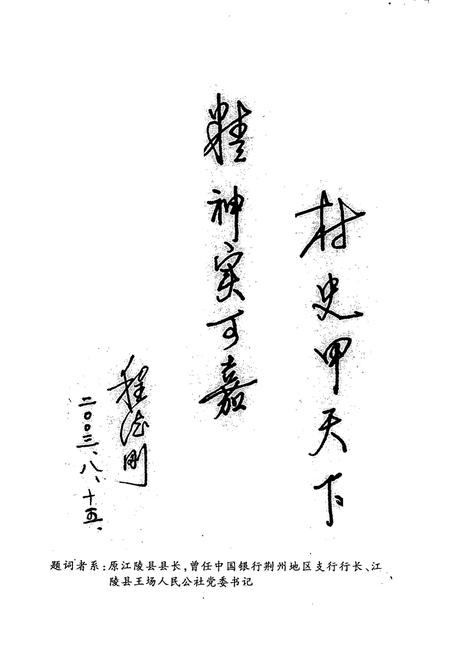 村史甲天下
精神实可嘉
程德刚
二〇〇三、八、十五、
题词者系：原江陵县县长，曾任中国银行荆州地区支行行长、江
陵县王场人民公社党委书记